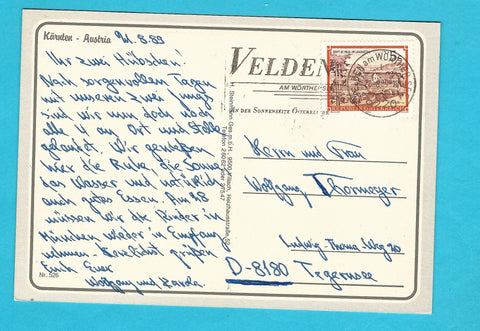 Kärnten - Austria 21.8.89
Ihr zwei Hübschen!
Nach sorgenvollen Tagen
mit unseren zwei Jungs
sind wir nun doch noch
alle 4 an Ort und Stelle
gelandet. Wir genießen
hier die Ruhe, die Sonne,
das Wasser und natürlich
auch gutes Essen. Am 3.9.
müssen wir die Kinder in
München wieder in Empfang
nehmen. Herzlichst grüßen
Euch Eure
Wolfgang und
Nr. 526
H. Steinemann Ges.m.b.H., 9500 Villach
VELDEN
AM WÖRTHERSEE
AN DER SONNENSEITE ÖSTERREICHS
5
REPUBLIK ÖSTERREICH
VELDEN am WÖRTHER SEE
Herrn und Frau
Wolfgang Thormeyer
Ludwig-Thoma-Weg 20
D-8180 Tegernsee